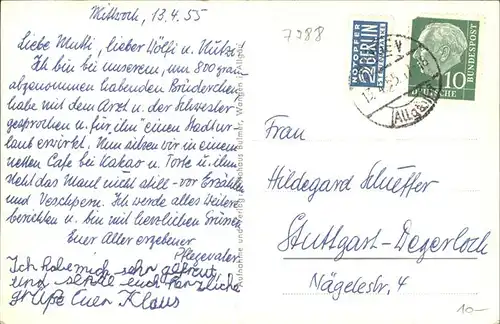 Mittwoch, 13.4.55
Liebe Mutti, lieber Wölfi u. Mutzi
Ich bin bei unserem, um 800 gram
abgenommen habenden Brüderchen
habe mit dem Arzt u. der Schwester
gesprochen u. „für ihn" einen Stadtur-
laub erwirkt. Nun sitzen wir in einem
netten Cafe bei Kakao u. Torte u. ihm
steht das Maul nicht still - vor Erzählen
und Verschpern. Ich werde alles Weitere
berichten u. bin mit herzlichen Grüssen
Euer Aller ergebener
Pflegevater
Ich habe mich sehr gefreut
und sende euch herzliche
Grüße Euer Klaus
Aufnahme und Verlag Wangen i. Allgäu
7988
NOTOPFER
2 BERLIN
STEUERMARKE
DEUTSCHE
BUNDESPOST
10
(Allgäu)
Frau
Hildegard
Stuttgart-Degerloch
Nägelestr. 4
10-